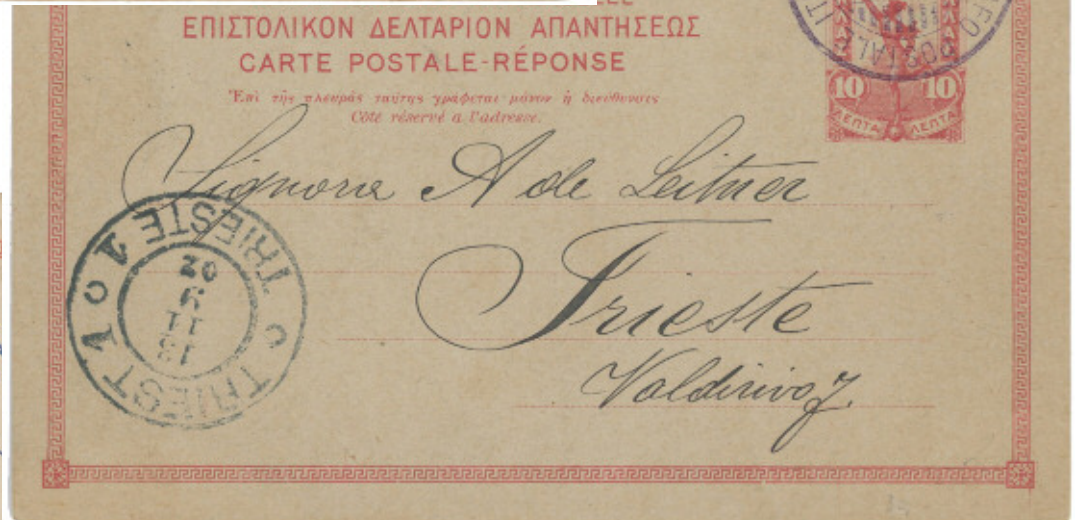 ΕΠΙΣΤΟΛΙΚΟΝ ΔΕΛΤΑΡΙΟΝ ΑΠΑΝΤΗΣΕΩΣ
CARTE POSTALE-RÉPONSE
Ἐπὶ τῆς πλευρᾶς ταύτης γράφεται μόνον ἡ διεύθυνσις
Côté réservé a l'adresse.
POSTALE IT
10 10
ΛΕΠΤΑ ΛΕΠΤΑ
Signora A de Leitner
Trieste
Valdirivo 7.
TRIESTE 1
TRIEST 1
02
11
18